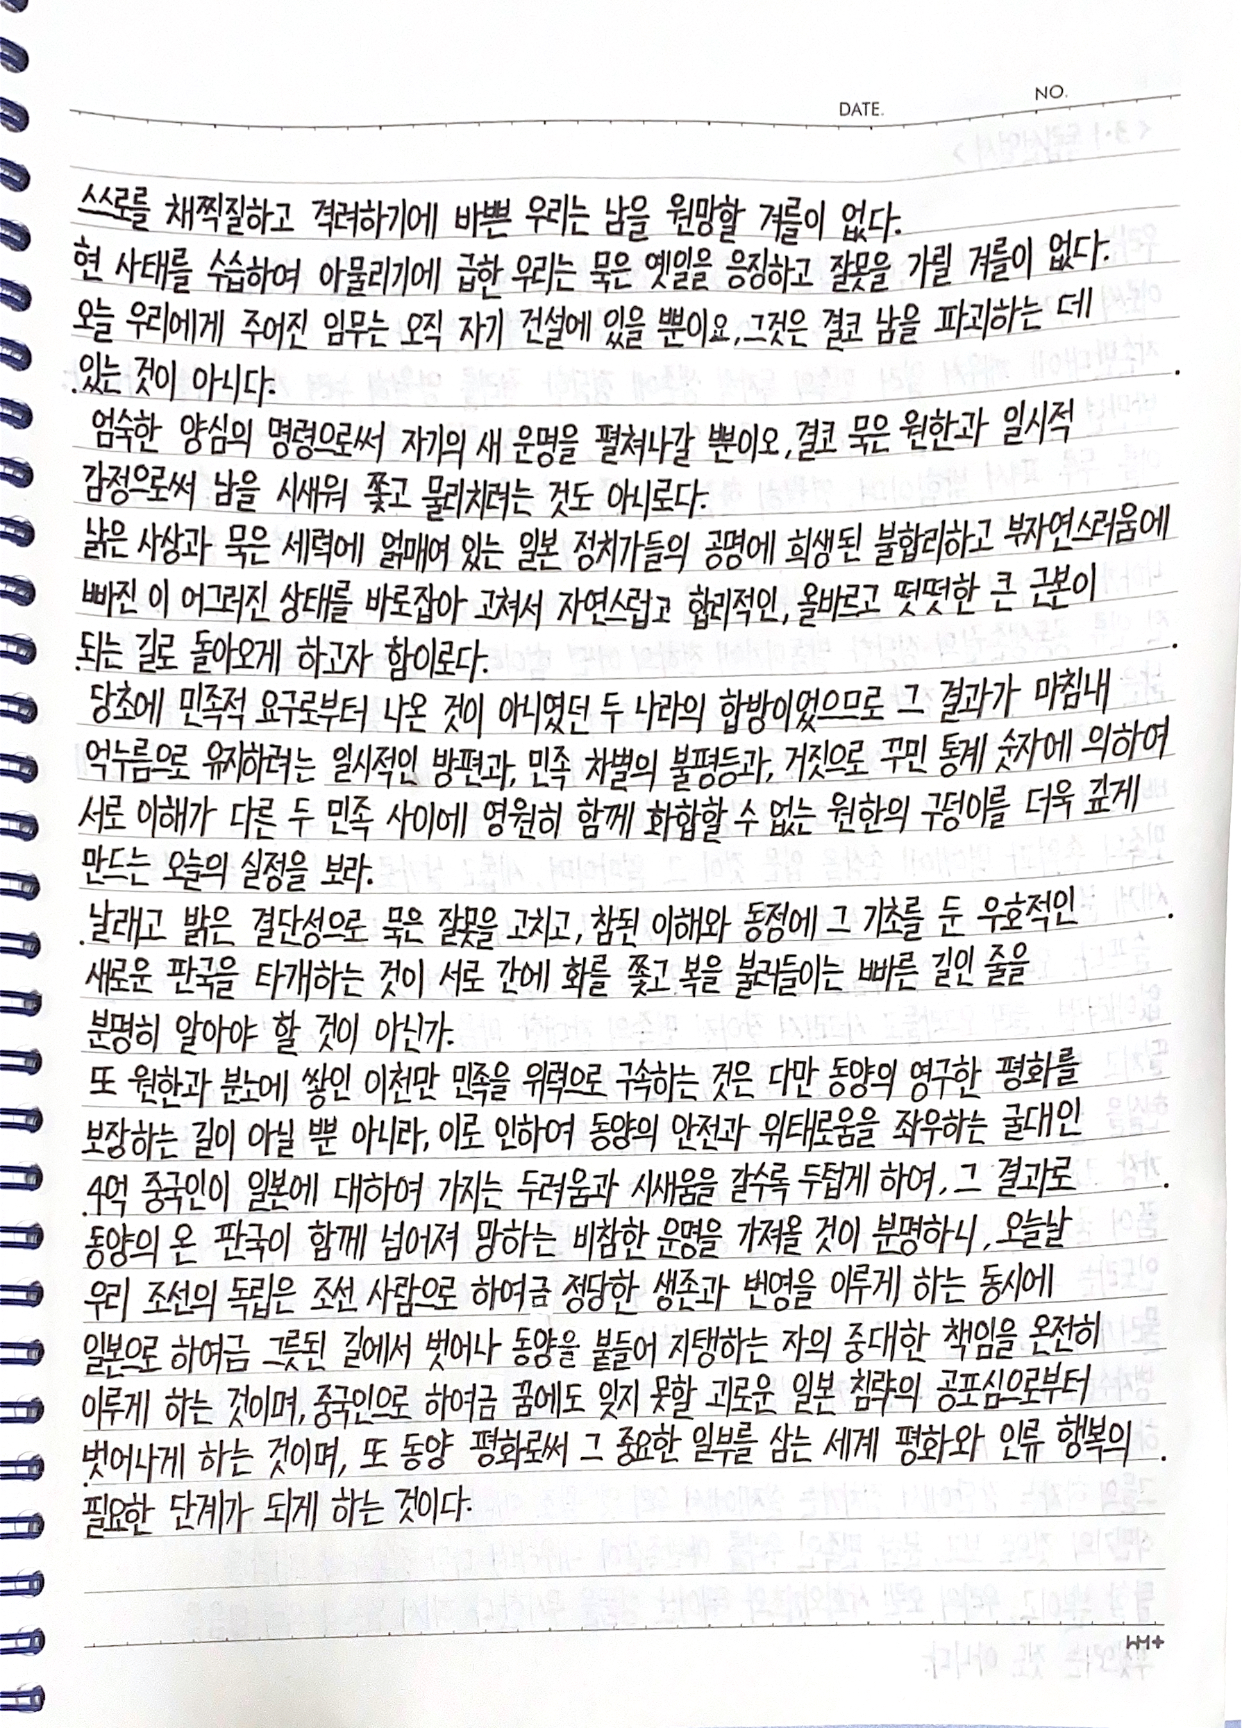 DATE.
NO.
스스로를 채찍질하고 격려하기에 바쁜 우리는 남을 원망할 겨를이 없다.
현 사태를 수습하여 아물리기에 급한 우리는 묵은 옛일을 응징하고 잘못을 가릴 겨를이 없다.
오늘 우리에게 주어진 임무는 오직 자기 건설에 있을 뿐이요, 그것은 결코 남을 파괴하는 데
있는 것이 아니다.
엄숙한 양심의 명령으로써 자기의 새 운명을 펼쳐나갈 뿐이오, 결코 묵은 원한과 일시적
감정으로써 남을 시새워 쫓고 물리치려는 것도 아니로다.
낡은 사상과 묵은 세력에 얽매여 있는 일본 정치가들의 공명에 희생된 불합리하고 부자연스러움에
빠진 이 어그러진 상태를 바로잡아 고쳐서 자연스럽고 합리적인, 올바르고 떳떳한 큰 근본이
되는 길로 돌아오게 하고자 함이로다.
당초에 민족적 요구로부터 나온 것이 아니였던 두 나라의 합방이었으므로 그 결과가 마침내
억누름으로 유지하려는 일시적인 방편과, 민족 차별의 불평등과, 거짓으로 꾸민 통계 숫자에 의하여
서로 이해가 다른 두 민족 사이에 영원히 함께 화합할 수 없는 원한의 구덩이를 더욱 깊게
만드는 오늘의 실정을 보라.
날래고 밝은 결단성으로 묵은 잘못을 고치고, 참된 이해와 동정에 그 기초를 둔 우호적인
새로운 판국을 타개하는 것이 서로 간에 화를 쫓고 복을 불러들이는 빠른 길인 줄을
분명히 알아야 할 것이 아닌가.
또 원한과 분노에 쌓인 이천만 민족을 위력으로 구속하는 것은 다만 동양의 영구한 평화를
보장하는 길이 아닐 뿐 아니라, 이로 인하여 동양의 안전과 위태로움을 좌우하는 굴대인
4억 중국인이 일본에 대하여 가지는 두려움과 시새움을 갈수록 두텁게 하여, 그 결과로
동양의 온 판국이 함께 넘어져 망하는 비참한 운명을 가져올 것이 분명하니, 오늘날
우리 조선의 독립은 조선 사람으로 하여금 정당한 생존과 번영을 이루게 하는 동시에
일본으로 하여금 그릇된 길에서 벗어나 동양을 붙들어 지탱하는 자의 중대한 책임을 온전히
이루게 하는 것이며, 중국인으로 하여금 꿈에도 잊지 못할 괴로운 일본 침략의 공포심으로부터
벗어나게 하는 것이며, 또 동양 평화로써 그 중요한 일부를 삼는 세계 평화와 인류 행복의
필요한 단계가 되게 하는 것이다.